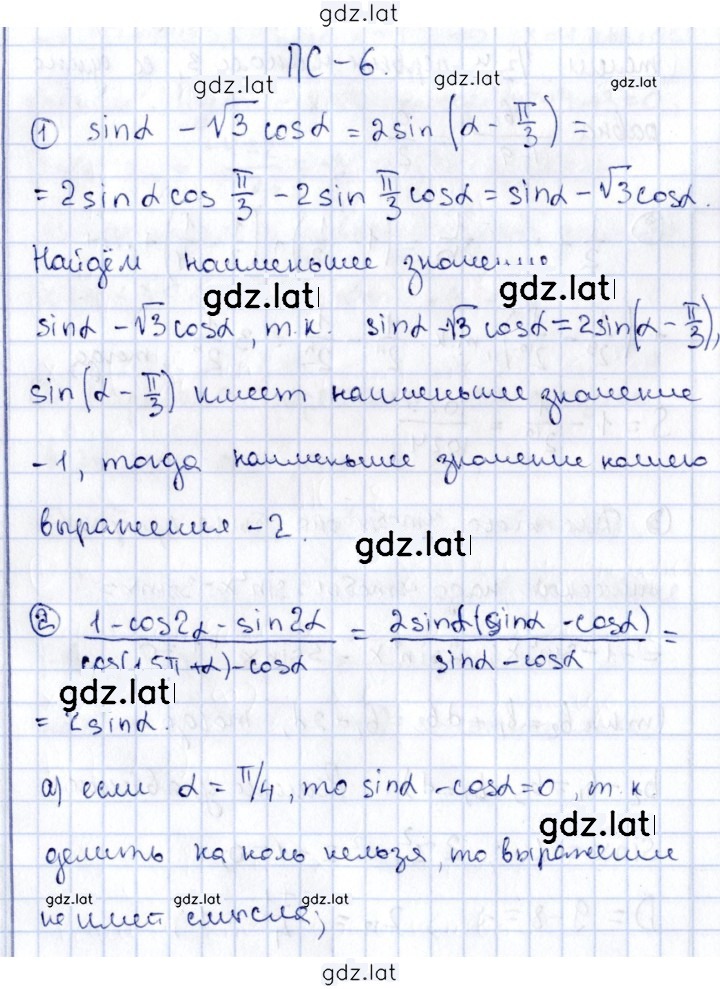 gdz.lat
ПС-6.
gdz.lat gdz.lat gdz.lat
① sinα - √3 cosα = 2sin(α - π/3) =
= 2sinα cos π/3 - 2sin π/3 cosα = sinα - √3cosα.
Найдём наименьшее
gdz.lat gdz.lat
sinα - √3cosα, т.к. sinα - √3 cosα = 2sin(α - π/3),
sin(α - π/3) имеет наименьшее значение
-1, тогда наименьшее значение нашего
выражения -2.
gdz.lat
② (1-cos2α - sin2α)/( +α)-cosα) = 2sinα(sinα - cosα)/(sinα - cosα) =
gdz.lat
= 2sinα.
а) если α = π/4, то sinα - cosα = 0, т.к.
gdz.lat
делить на ноль нельзя, то выражение
gdz.lat gdz.lat gdz.lat
не имеет смысла;
gdz.lat